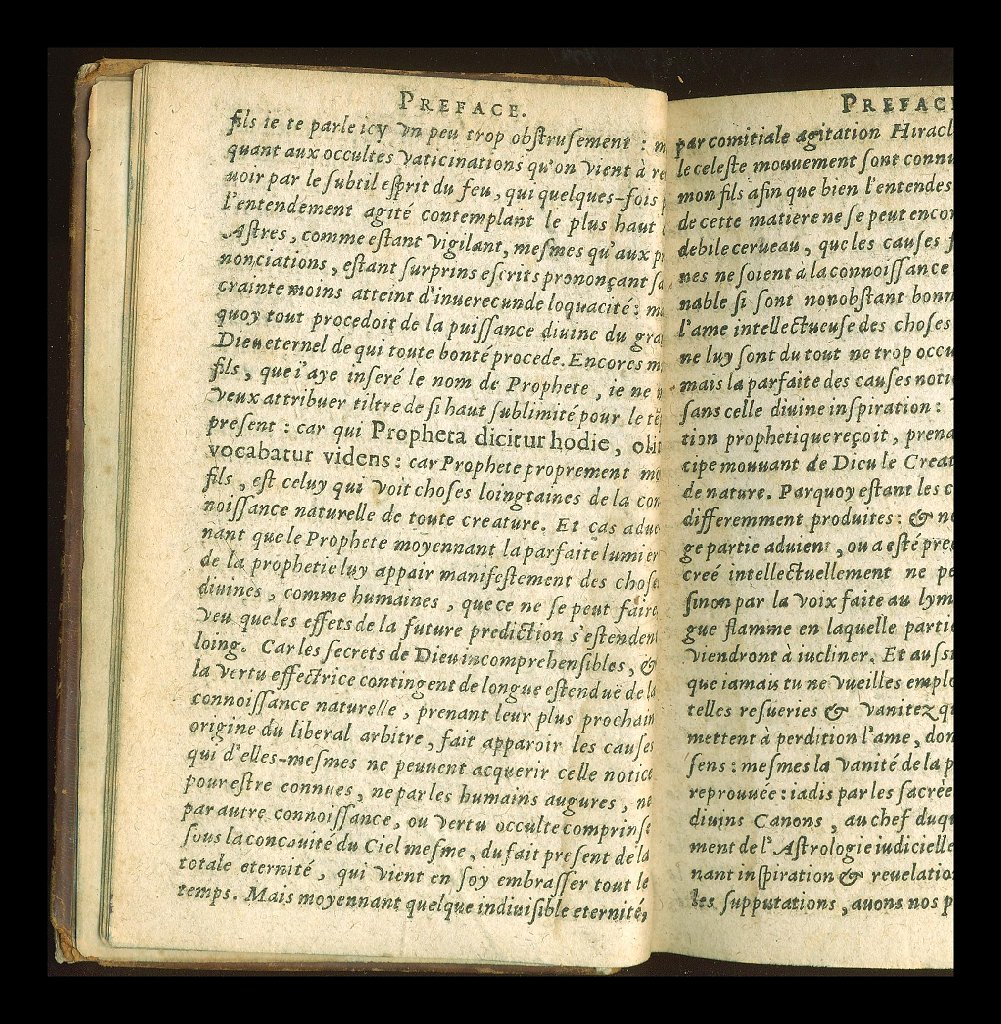 PREFACE.
fils ie te parle icy vn peu trop obſtruſement :
quant aux occultes vaticinations qu'on vient à re
uoir par le ſubtil eſprit du feu, qui quelques-fois
l'entendement agité contemplant le plus haut
Aſtres, comme eſtant vigilant, meſmes qu'aux p
nonciations, eſtant ſurprins eſcrits prononçant ſa
crainte moins atteint d'inuerecunde loquacité : m
quoy tout procedoit de la puiſſance diuine du gra
Dieu eternel de qui toute bonté procede. Encores m
fils, que i'aye inſeré le nom de Prophete, ie ne
veux attribuer tiltre de ſi haut ſublimité pour le tẽ
preſent : car qui Propheta dicitur hodie, oli
vocabatur videns : car Prophete proprement mo
fils, eſt celuy qui voit choſes loingtaines de la con
noiſſance naturelle de toute creature. Et cas adue
nant que le Prophete moyennant la parfaite lumier
de la prophetie luy appair manifeſtement des choſe
diuines, comme humaines, que ce ne ſe peut faire
veu que les effets de la future prediction s'eſtendent
loing. Car les ſecrets de Dieu incomprehenſibles, &
la vertu effectrice contingent de longue eſtenduë de la
connoiſſance naturelle, prenant leur plus prochain
origine du liberal arbitre, fait apparoir les cauſes
qui d'elles-meſmes ne peuuent acquerir celle notice
pour eſtre connues, ne par les humains augures, ne
par autre connoiſſance, ou vertu occulte comprinſe
ſous la concauité du Ciel meſme, du fait preſent de la
totale eternité, qui vient en ſoy embraſſer tout le
temps. Mais moyennant quelque indiuiſible eternité,
PREFACE
par comitiale agitation Hiracl
le celeſte mouuement ſont connu
mon fils afin que bien l'entendes
de cette matiere ne ſe peut encor
debile cerueau, que les cauſes
nes ne ſoient à la connoiſſance
nable ſi ſont nonobſtant bonn
l'ame intellectueuſe des choſes
ne luy ſont du tout ne trop occu
mais la parfaite des cauſes noti
ſans celle diuine inſpiration :
tion prophetique reçoit, prena
cipe mouuant de Dieu le Creat
de nature. Parquoy eſtant les c
differemment produites : & n
ge partie aduient, ou a eſté pre
creé intellectuellement ne pe
ſinon par la voix faite au lym
gue flamme en laquelle partie
viendront à iucliner. Et auſsi
que iamais tu ne vueilles emplo
telles reſueries & vanitez qu
mettent à perdition l'ame, don
ſens : meſmes la vanité de la p
reprouuée : iadis par les ſacrée
diuins Canons, au chef duq
ment de l'Aſtrologie iudicielle
nant inſpiration & reuelatio
les ſupputations, auons nos p